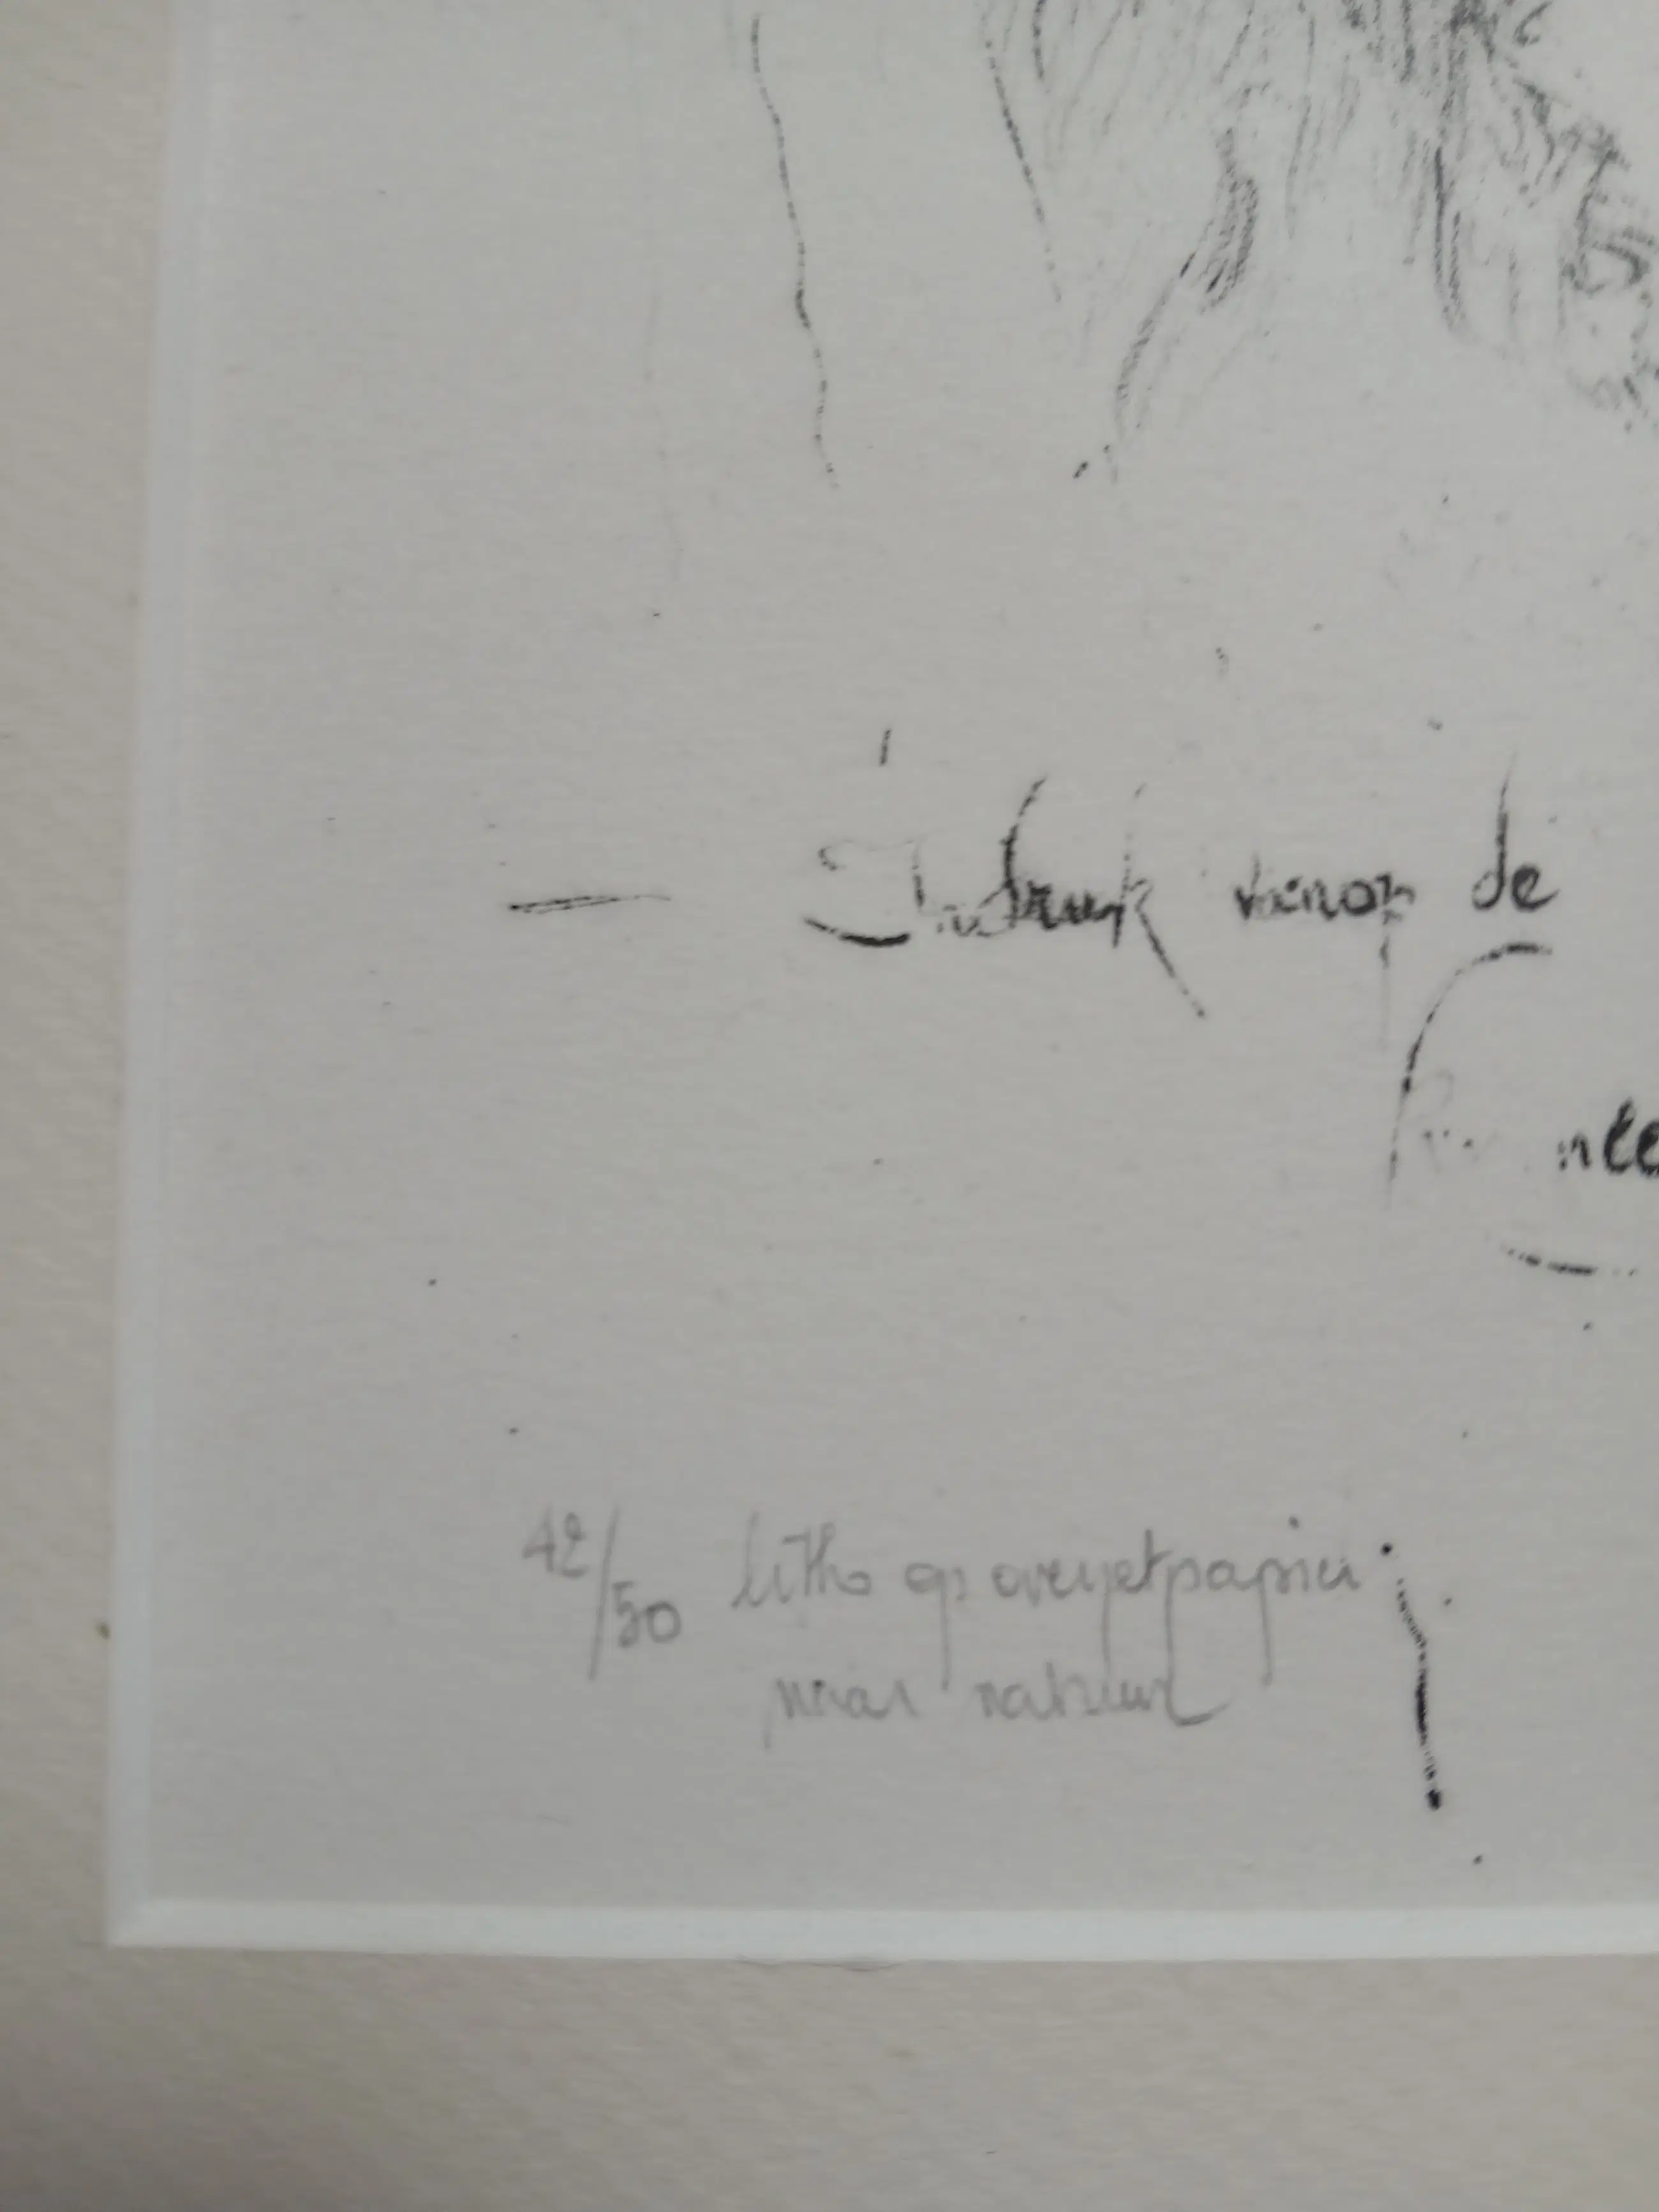 — Indruk vanop de
42/50 litho op overzetpapier
naar natuur